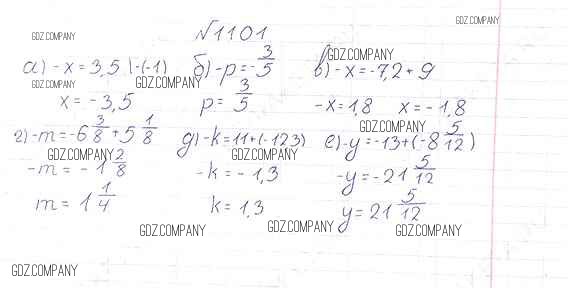 №1101
GDZ.COMPANY
GDZ.COMPANY
GDZ.COMPANY
а) -x = 3,5 |·(-1) б) -p = -3/5 в) -x = -7,2 + 9
GDZ.COMPANY
GDZ.COMPANY
x = -3,5 p = 3/5 -x = 1,8 x = -1,8
GDZ.COMPANY
г) -m = -6 3/8 + 5 1/8 д) -k = 11 + (-12,3) е) -y = -13 + (-8 5/12)
GDZ.COMPANY
GDZ.COMPANY
-m = -1 2/8 -k = -1,3 -y = -21 5/12
m = 1 1/4 k = 1,3 y = 21 5/12
GDZ.COMPANY
GDZ.COMPANY
GDZ.COMPANY
GDZ.COMPANY